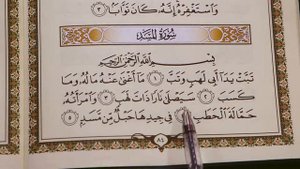 وَاسْتَغْفِرْهُ إِنَّهُ كَانَ تَوَّابًا ٣
سُورَةُ الْمَسَدِ
بِسْمِ اللَّهِ الرَّحْمَٰنِ الرَّحِيمِ
تَبَّتْ يَدَا أَبِي لَهَبٍ وَتَبَّ ١ مَا أَغْنَىٰ عَنْهُ مَالُهُ وَمَا
كَسَبَ ٢ سَيَصْلَىٰ نَارًا ذَاتَ لَهَبٍ ٣ وَامْرَأَتُهُ
حَمَّالَةَ الْحَطَبِ ٤ فِي جِيدِهَا حَبْلٌ مِّن مَّسَدٍ ٥